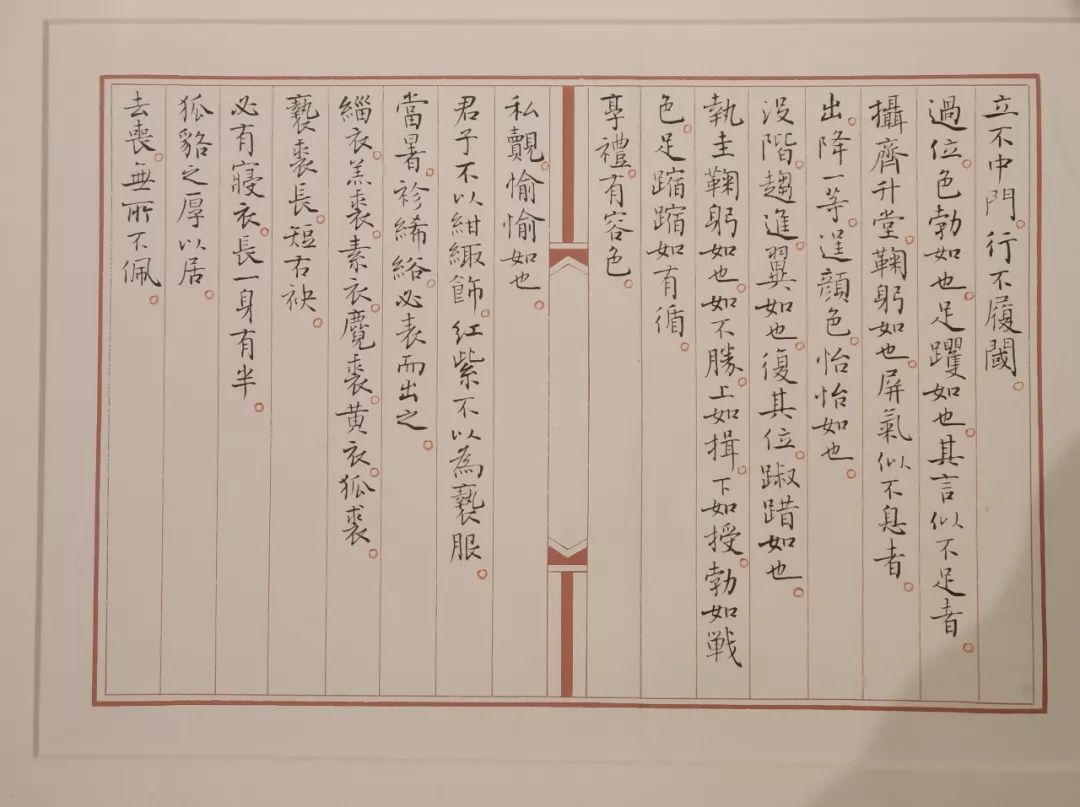 立不中門。行不履閾。
過位。色勃如也。足躩如也。其言似不足者。
攝齊升堂。鞠躬如也。屏氣似不息者。
出。降一等。逞顏色。怡怡如也。
没階。趨進。翼如也。復其位。踧踖如也。
執圭鞠躬如也。如不勝。上如揖。下如授。勃如戰
色。足蹜蹜如有循。
享禮。有容色。
私覿。愉愉如也。
君子不以紺緅飾。紅紫不以為褻服。
當暑。袗絺綌。必表而出之。
緇衣。羔裘。素衣。麑裘。黄衣。狐裘。
褻裘長。短右袂。
必有寢衣。長一身有半。
狐貉之厚以居。
去喪。無所不佩。